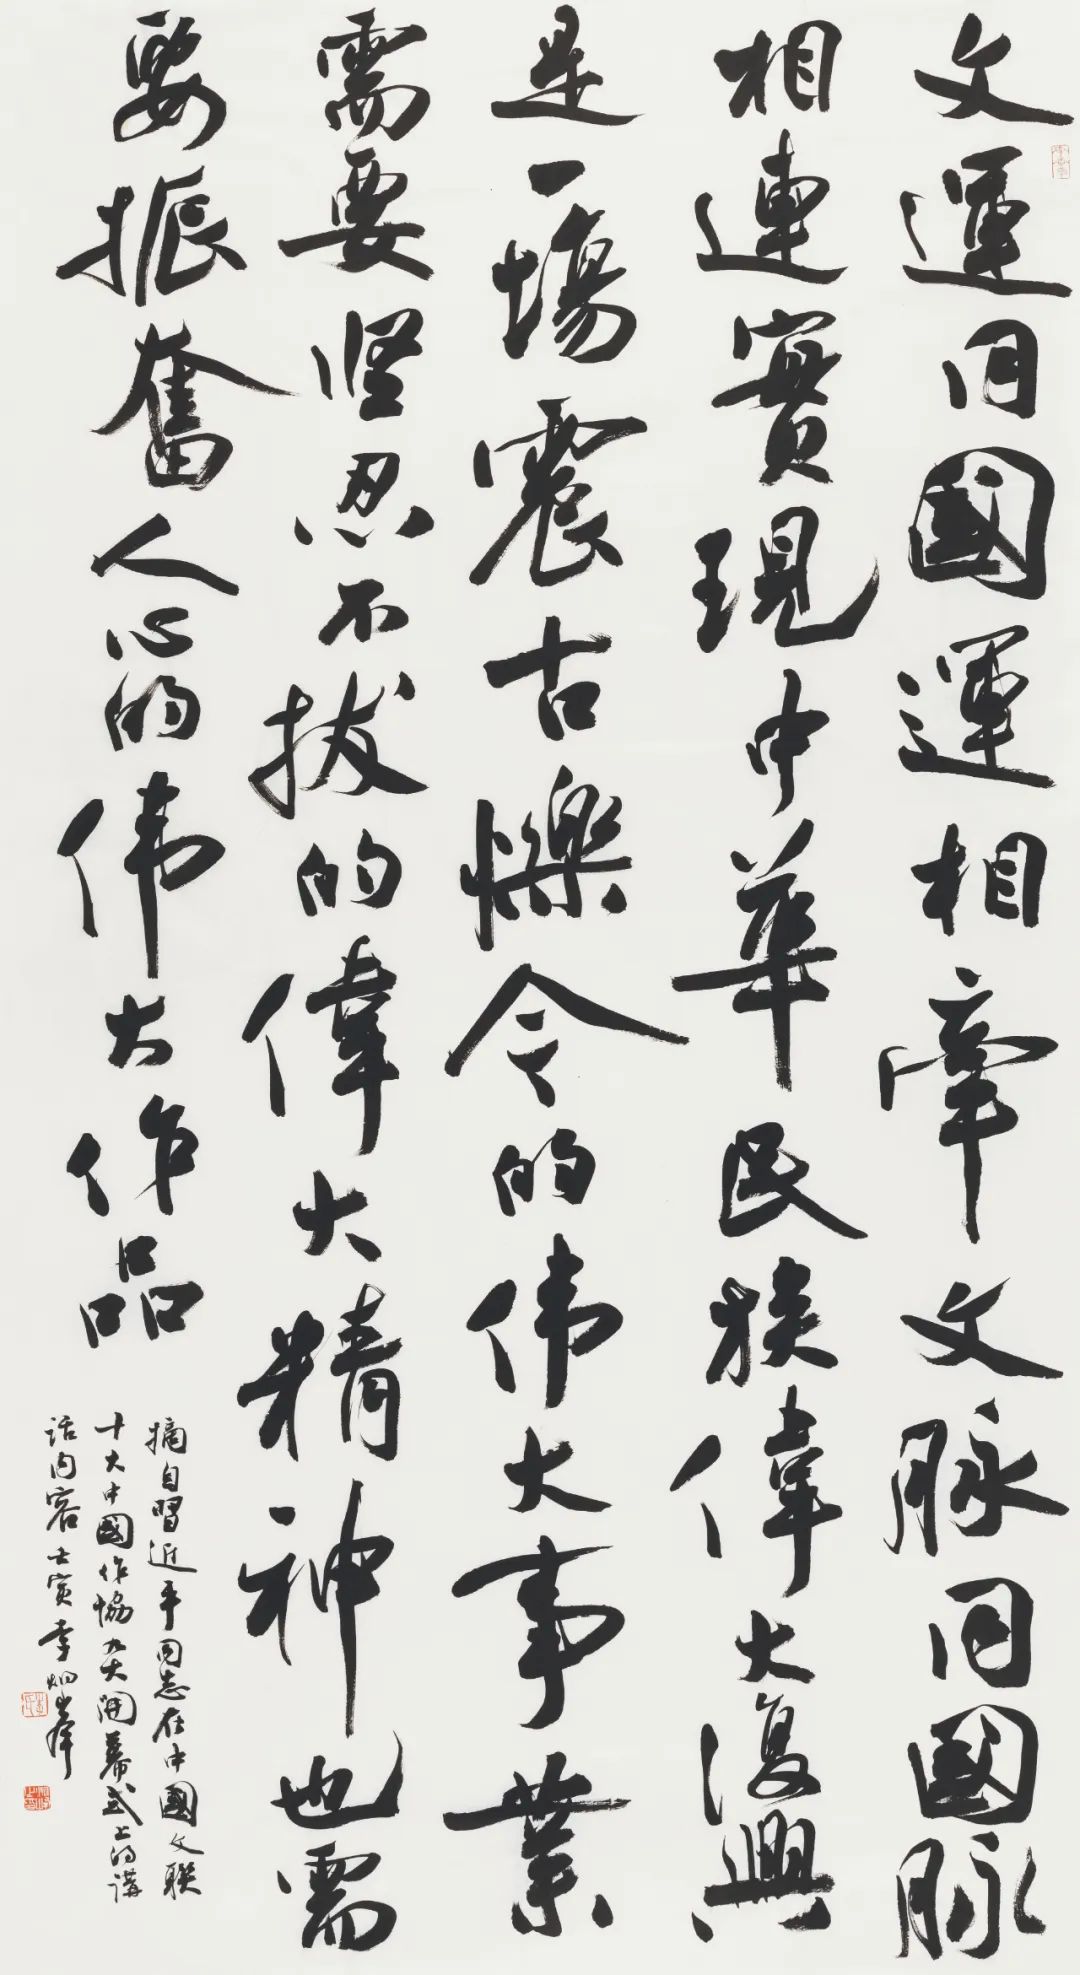 文運同國運相牽文脉同國脉
相連實現中華民族偉大復興
是一場震古爍今的伟大事業
需要坚忍不拔的偉大精神也需
要振奮人心的伟大作品
摘自習近平同志在中國文联
十大中國作協九大開幕式上的講
话内容壬寅李炯峰